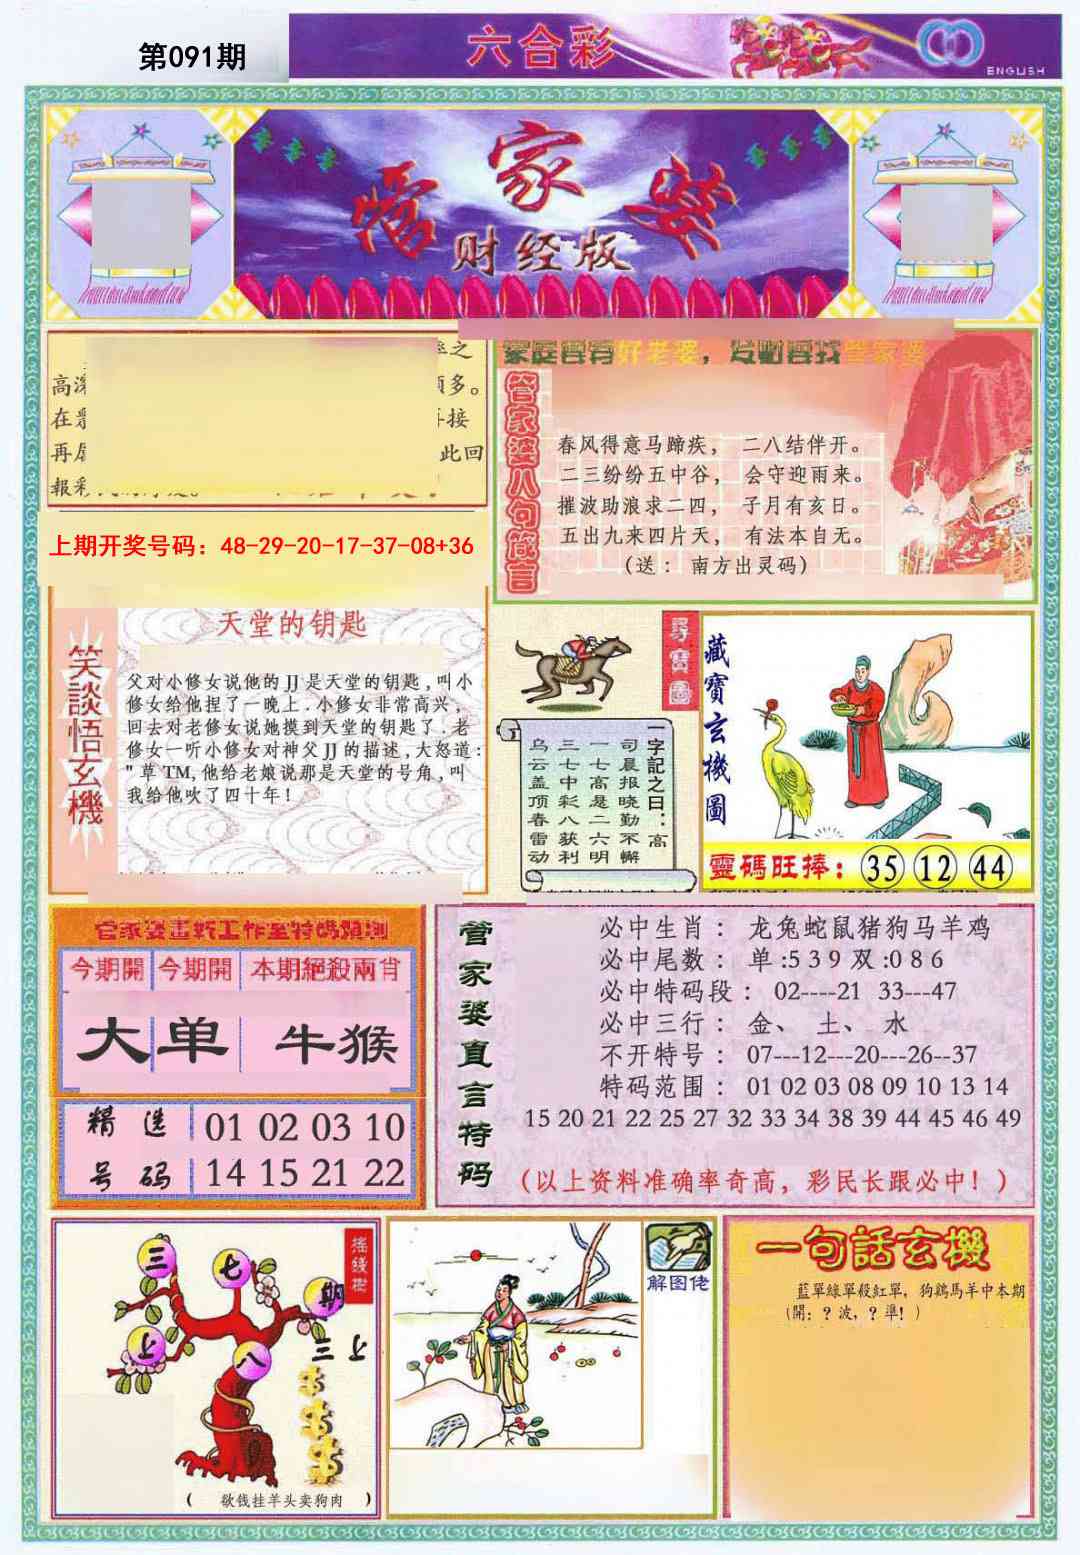 第091期
六合彩
ENGLISH
管家婆
财经版
高深
在
再
此回
報彩
上期开奖号码：48-29-20-17-37-08+36
好老婆，
管家婆八句箴言
春风得意马蹄疾， 二八结伴开。
二三纷纷五中谷， 会守迎雨来。
摧波助浪求二四， 子月有亥日。
五出九来四片天， 有法本自无。
（送： 南方出灵码）
笑談悟玄機
天堂的钥匙
父对小修女说他的JJ是天堂的钥匙,叫小
修女给他捏了一晚上.小修女非常高兴,
回去对老修女说她摸到天堂的钥匙了.老
修女一听小修女对神父JJ的描述,大怒道:
"草TM,他给老娘说那是天堂的号角,叫
我给他吹了四十年!
尋寶圖
一字記之曰：高
司晨报晓勤不懈
一七高是二六明
三七中彩八获利
乌云盖顶春雷动
藏寶玄機圖
靈碼旺捧：35 12 44
管家婆畫轩工作室特碼預測
今期開 今期開 本期絕殺兩肖
大 单 牛猴
精选 01 02 03 10
号码 14 15 21 22
管家婆直言特码
必中生肖： 龙兔蛇鼠猪狗马羊鸡
必中尾数： 单:5 3 9 双:0 8 6
必中特码段： 02----21 33---47
必中三行： 金、 土、 水
不开特号： 07---12---20---26--37
特码范围： 01 02 03 08 09 10 13 14
15 20 21 22 25 27 32 33 34 38 39 44 45 46 49
（以上资料准确率奇高，彩民长跟必中！）
搖錢樹
三
七
期
上
八
三上
（ 欲钱挂羊头卖狗肉 ）
解图佬
一句話玄機
藍單綠單殺紅單，狗鷄馬羊中本期
（開：？波，？準！）